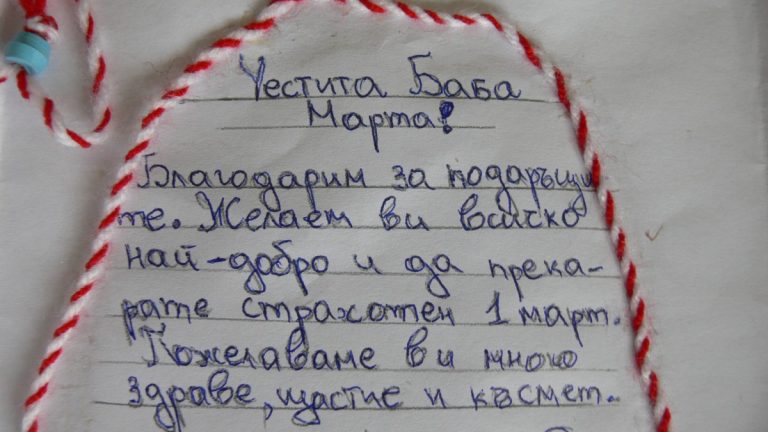 Честита Баба
Марта!
Благодарим за подаръци
те. Желаем ви всичко
най-добро и да прека-
рате страхотен 1 март.
Пожелаваме ви много
здраве, щастие и късмет.